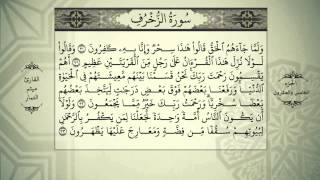 سُورَةُ الزُّخْرُفِ
وَلَمَّا جَآءَهُمُ الْحَقُّ قَالُوا۟ هَٰذَا سِحْرٌ وَإِنَّا بِهِۦ كَٰفِرُونَ ٣٠ وَقَالُوا۟
لَوْلَا نُزِّلَ هَٰذَا الْقُرْءَانُ عَلَىٰ رَجُلٍ مِّنَ الْقَرْيَتَيْنِ عَظِيمٍ ٣١ أَهُمْ
يَقْسِمُونَ رَحْمَتَ رَبِّكَ نَحْنُ قَسَمْنَا بَيْنَهُم مَّعِيشَتَهُمْ فِى الْحَيَوٰةِ
الدُّنْيَا وَرَفَعْنَا بَعْضَهُمْ فَوْقَ بَعْضٍ دَرَجَٰتٍ لِّيَتَّخِذَ بَعْضُهُم
بَعْضًا سُخْرِيًّا وَرَحْمَتُ رَبِّكَ خَيْرٌ مِّمَّا يَجْمَعُونَ ٣٢ وَلَوْلَآ
أَن يَكُونَ النَّاسُ أُمَّةً وَٰحِدَةً لَّجَعَلْنَا لِمَن يَكْفُرُ بِالرَّحْمَٰنِ
لِبُيُوتِهِمْ سُقُفًا مِّن فِضَّةٍ وَمَعَارِجَ عَلَيْهَا يَظْهَرُونَ ٣٣
الجزء
الخامس والعشرون
القارئ
ميثم
التمار